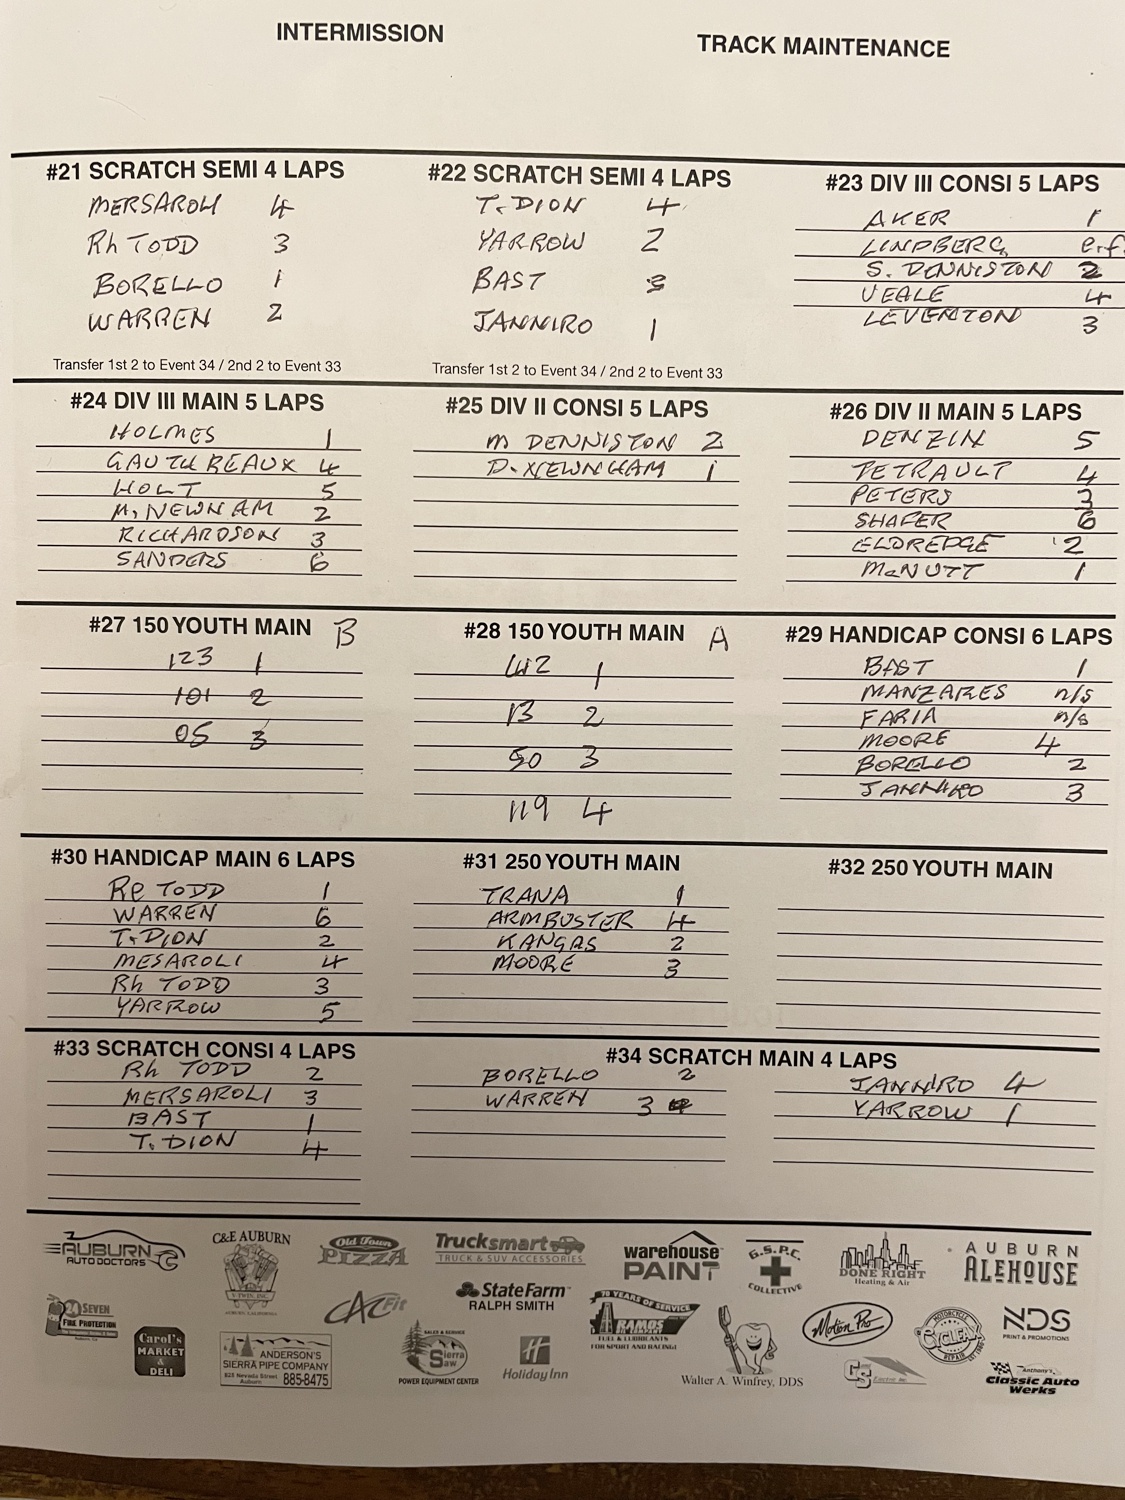 INTERMISSION
TRACK MAINTENANCE
#21 SCRATCH SEMI 4 LAPS
MERSAROLI 4
Rh TODD 3
BORELLO 1
WARREN 2
Transfer 1st 2 to Event 34 / 2nd 2 to Event 33
#22 SCRATCH SEMI 4 LAPS
T. DION 4
YARROW 2
BAST 3
JANNIRO 1
Transfer 1st 2 to Event 34 / 2nd 2 to Event 33
#23 DIV III CONSI 5 LAPS
AKER 1
LINDBERG e.f.
S. DENNISTON 2
VEALE 4
LEVENTON 3
#24 DIV III MAIN 5 LAPS
HOLMES 1
GAUTHREAUX 4
HOLT 5
M. NEWNHAM 2
RICHARDSON 3
SANDERS 6
#25 DIV II CONSI 5 LAPS
M DENNISTON 2
D. NEWNHAM 1
#26 DIV II MAIN 5 LAPS
DENZIN 5
TETRAULT 4
PETERS 3
SHAFER 6
ELDREDGE 2
McNUTT 1
#27 150 YOUTH MAIN B
123 1
101 2
05 3
#28 150 YOUTH MAIN A
42 1
13 2
50 3
119 4
#29 HANDICAP CONSI 6 LAPS
BAST 1
MANZARES n/s
FARIA n/s
MOORE 4
BORELLO 2
JANNIRO 3
#30 HANDICAP MAIN 6 LAPS
Re TODD 1
WARREN 6
T. DION 2
MESAROLI 4
Rh TODD 3
YARROW 5
#31 250 YOUTH MAIN
TRANA 1
ARMBUSTER 4
KANGAS 2
MOORE 3
#32 250 YOUTH MAIN
#33 SCRATCH CONSI 4 LAPS
Rh TODD 2
MERSAROLI 3
BAST 1
T. DION 4
#34 SCRATCH MAIN 4 LAPS
BORELLO 2
WARREN 3
JANNIRO 4
YARROW 1
AUBURN
AUTO DOCTORS
C&E AUBURN
V-TWIN, INC.
Old Town
PIZZA
Trucksmart
TRUCK & SUV ACCESSORIES
warehouse
PAINT
G.S.P.C.
COLLECTIVE
DONE RIGHT
Heating & Air
AUBURN
ALEHOUSE
24 SEVEN
FIRE PROTECTION
CAL Fit
StateFarm
RALPH SMITH
70 YEARS OF SERVICE
RAMOS
FUEL & LUBRICANTS
FOR SPORT AND RACING!
Motion Pro
MOTORCYCLE
CYCLEAX
REPAIR
NDS
PRINT & PROMOTIONS
Carol's
MARKET
&
DELI
ANDERSON'S
SIERRA PIPE COMPANY
825 Nevada Street
Auburn 885-8475
SALES & SERVICE
Sierra
Saw
POWER EQUIPMENT CENTER
H
Holiday Inn
Walter A. Winfrey, DDS
Anthony's
Classic Auto
Werks